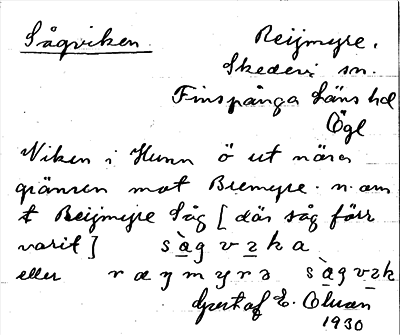 Sågviken. Reijmyre.
Skedevi sn.
Finspånga Läns hd
Ögl
Viken i Hunn ö ut nära
gränsen mot Bremyre. n. om
t Reijmyre Såg [där såg förr
varit] sàgvzka
eller ræymyrə sàgvzk
Gustaf E. Olsson
1930